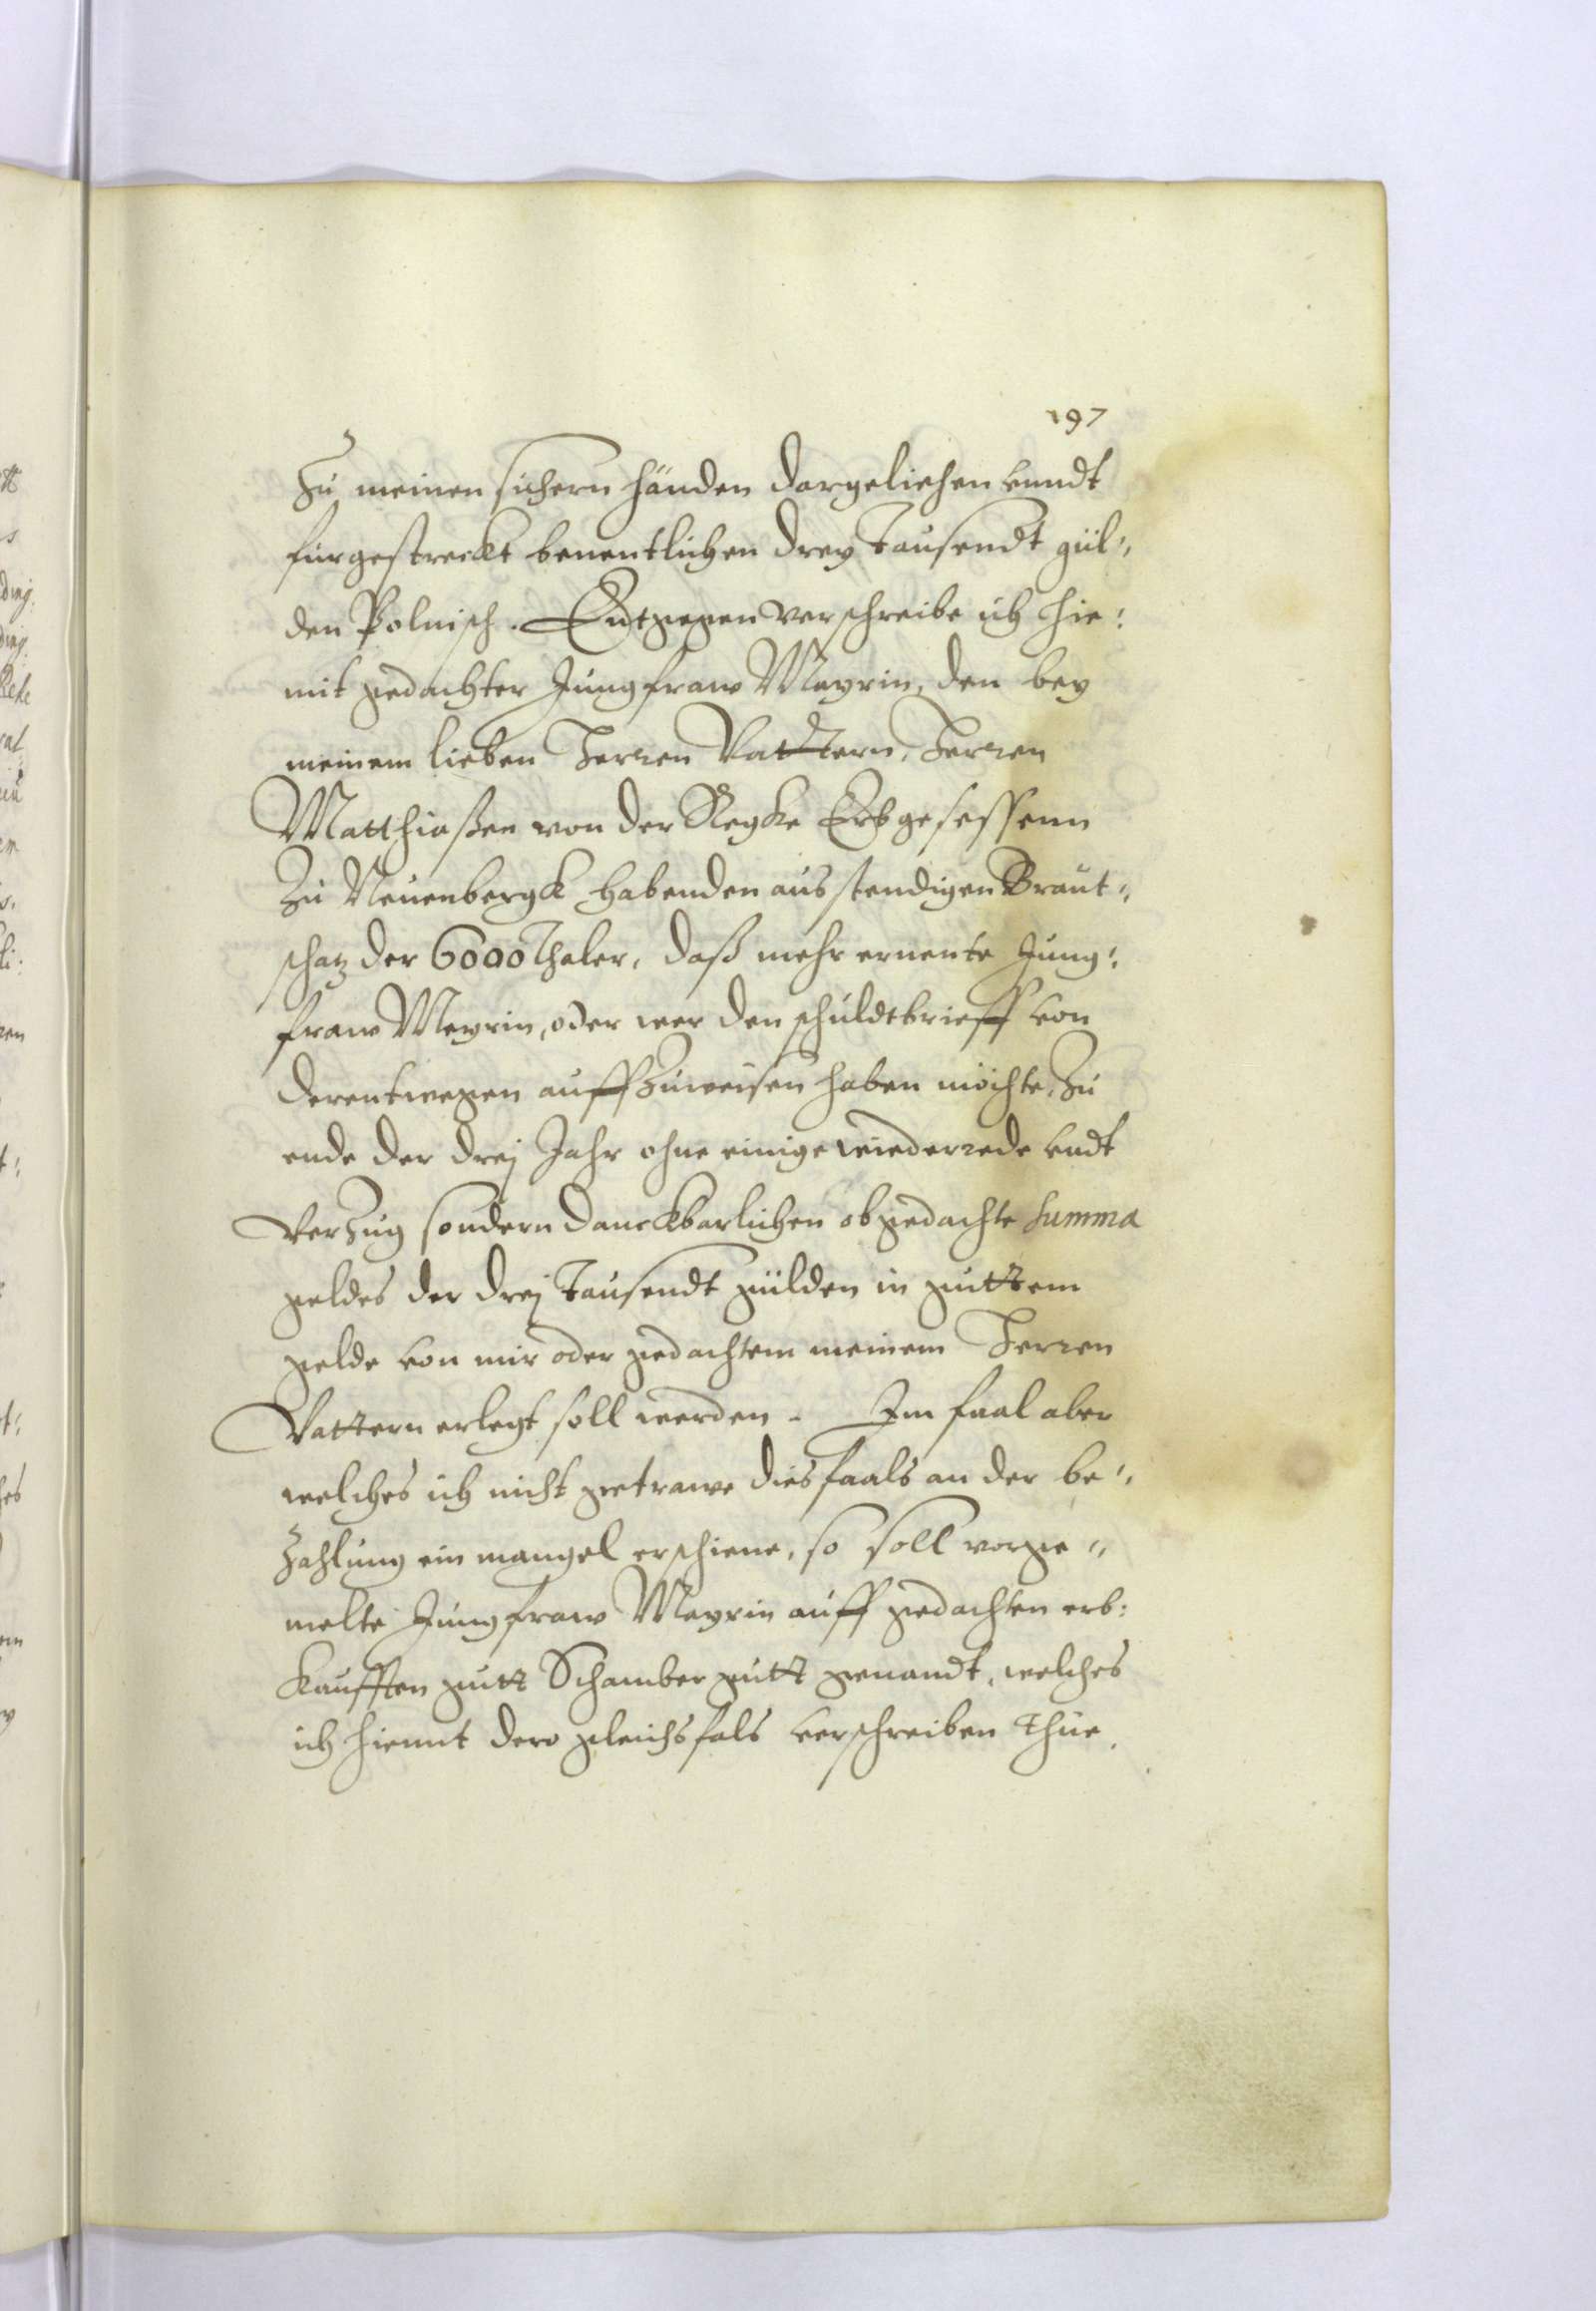 197
Zu meinen sichern händen dargeliehen vundt
fürgestreckt benentlichen drey Tausendt gül„
den Polnisch. Entgegen verschreibe ich hie:
mit gedachter Jungfraw Meyrin, den bey
meinem lieben Herren Vattern, Herren
Matthiaßen von der Regke Erbgesessenn
Zu Neuenbergk habenden ausstendigen Braut„
schatz der 6000 Thaler, daß mehr ernente Jung„
fraw Meyrin, oder wer den schuldtbrieff von
derentwegen auffzuweisen haben möchte, zu
ende der dreÿ Jahr ohne einige wiederrede vndt
Verzug sondern danckbarlichen obgedachte Summa
geldes der dreÿ Tausendt gülden in guttem
gelde von mir oder gedachtem meinem Herren
Vattern erlegt soll werden. Im faal aber
welches ich nicht getrawe diesfaals an der be„
Zahlung ein mangel erschiene, so soll vorge„
melte Jungfraw Meyrin auff gedachten erb:
kaufften gutt Schambergutt genandt, welches
ich hiemit dero gleichsfals verschreiben thue.